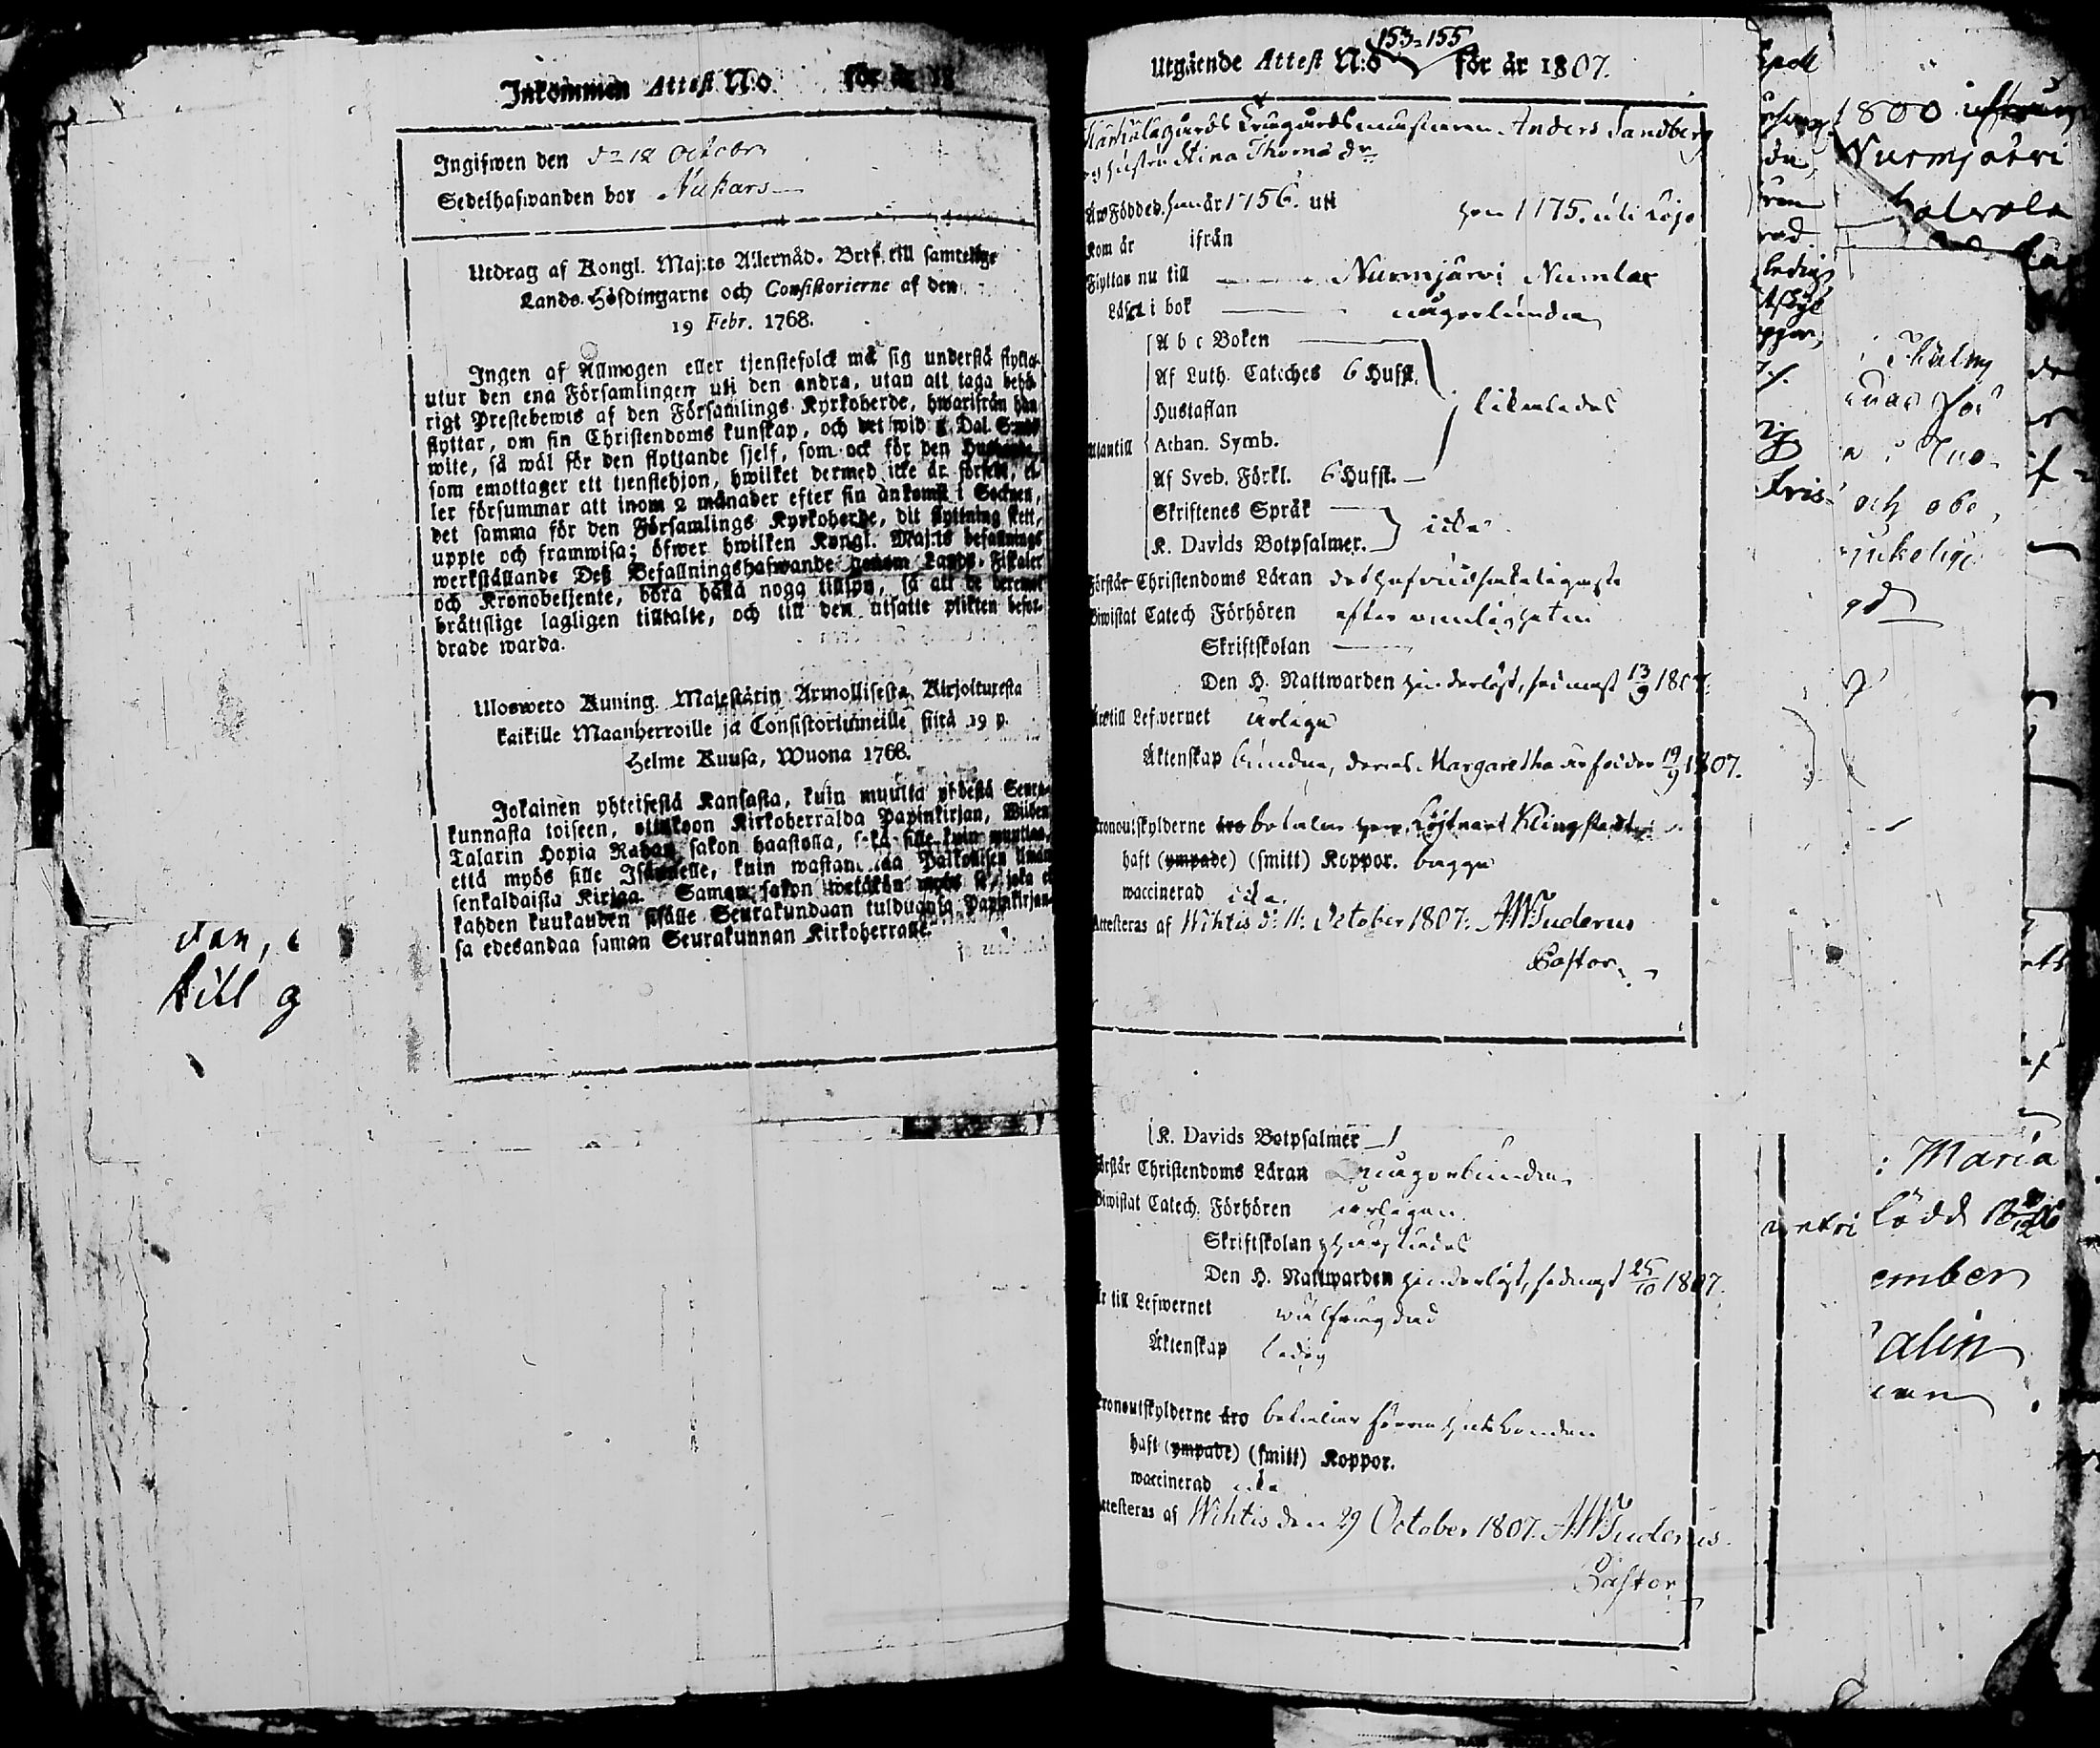 Inkommen Attest N:o för år 18
Ingifwen den d: 18 October
Sedelhafwanden bor Nukars
Utdrag af Kongl. Maj:ts Allernåd. Bref till samtelige
Lands-Höfdingarne och Consistorierne af den
19 Febr. 1768.
Ingen af Allmogen eller tjenstefolck må sig understå flytta
utur den ena Församlingen uti den andra, utan att taga behö-
rigt Prestebewis af den Församlings Kyrkoherde, hwarifrån han
flyttar, om sin Christendoms kunskap, och det wid 5 Dal. S:mt
wite, så wäl för den flyttande sjelf, som ock för den Husbonde,
som emottager ett tjenstehjon, hwilket dermed icke är försedt, el-
ler försummar att inom 2 månader efter sin ankomst i Socknen,
det samma för den Församlings Kyrkoherde, dit flyttning skett,
uppte och framwisa; öfwer hwilken Kongl. Maj:ts befallnings
werkställande Deß Befallningshafwande genom Lands-Fiskaler
och Kronobetjente, böra hålla noga tillsyn, så att de deremot
bråttslige lagligen tilltalte, och till den utsatte plikten befor-
drade warda.
Uloswero Kuning. Majestätin Armollisesta Kirjoituxesta
kaikille Maanherroille ja Consistoriumeille siitä 19 p.
Helme Kuusa, Wuona 1768.
Jokainen yhteisestä Kansasta, kuin muutta yhdestä Seura-
kunnasta toiseen, ottakoon Kirkoherralda Papinkirjan, Wiiden
Talarin Hopia Rahan sakon haastolla, sekä sille kuin muuttaa,
että myös sille Isännelle, kuin wastanottaa Palkollisen ilman
senkaldaista Kirjaa. Saman sakon wetäkön myös se, joka ei
kahden kuukauden sisälle Seurakundaan tulduansa Papinkirjan-
sa edesandaa saman Seurakunnan Kirkoherralle.
dan,
till g
153-155
Utgående Attest N:o för år 1807.
Härhälägårds Krugårdsmästaren Anders Sandberg
och hustru Stina Thoms dr
Äro Födde d. han år 1756. uti hon 1775. uti Lojo
Kom år ifrån
Flyttar nu till Nurmjärvi Numlax
Läser i bok någorlunda
A b c Boken
Af Luth. Cateches 6 Hufst.
Hustaflan
likaledes
Utantill Athan. Symb.
Af Sveb. Förkl. 6 Hufst.
Skriftenes Språk
K. Davids Botpsalmer. icke
Förstår Christendoms Läran det hufvudsakeligaste
Biwistat Catech Förhören efter vanligheten
Skriftskolan
Den H. Nattwarden hinderlöst, sednast 13/9 1807.
Äro till Lefwernet ärlige
Äktenskap bundne, deras Margaretha är född 19/9 1807.
Kronoutskylderne äro betalar herr Löjtnant Klingstedt
haft (ympade) (smitt) Koppor. bägge
waccinerad icke
Attesteras af Wihtis d: 11: October 1807: AWTuderus
Pastor
K. Davids Botpsalmer
Förstår Christendoms Läran någorlunda
Biwistat Catech. Förhören årligen
Skriftskolan
Den H. Nattwarden hinderlöst, sednast 25/10 1807.
Är till Lefwernet wälfrägdad
Äktenskap ledig
Kronoutskylderne äro betalar förra husbonden
haft (ympade) (smitt) Koppor.
waccinerad icke
Attesteras af Wihtis den 29 October 1807. AWTuderus.
Pastor
1800
Nurmjärvi
och obe
: Maria
född
ember
alin